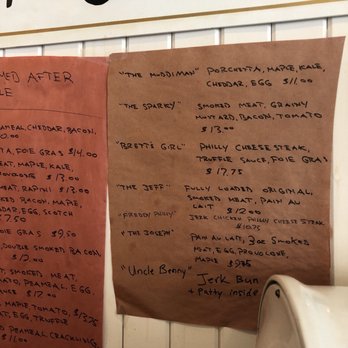 MED AFTER
LE
AMEAL, CHEDDAR, BACON,
0.00
TA, FOIE GRAS $14.00
EAT, MAPLE, KALE,
$13.00
MEAT, RAPINI $13.00
KED BACON, MAPLE,
DAR, EGG, SCOTCH
7.50
OIE GRAS $9.50
DOUBLE SMOKED BACON,
$12.00
T, SMOKED MEAT,
TOMATO, PEAMEAL, EGG,
$12.00
MAPLE, TOMATO, $13.75
T, EGG, TRUFFLE
PEAMEAL, CRACKLING,
$11.00
"THE MUDDIMAN" PORCHETTA, MAPLE, KALE,
CHEDDAR, EGG $11.00
"THE SPARKY" SMOKED MEAT, GRAINY
MUSTARD, BACON, TOMATO
$13.00
"BRETT'S GIRL" PHILLY CHEESE STEAK,
TRUFFLE SAUCE, FOIE GRAS
$17.75
"THE JEFF" FULLY LOADED ORIGINAL,
SMOKED MEAT, PAIN AU
LAIT $12.00
"FREDDY PHILLY" JERK CHICKEN PHILLY CHEESE STEAK
$10.75
"THE JOSEPH" PAIN AU LAIT, 3oz SMOKED
MEAT, EGG, PROVOLONE,
$9.75
"Uncle Benny" Jerk Bun
+ Patty inside